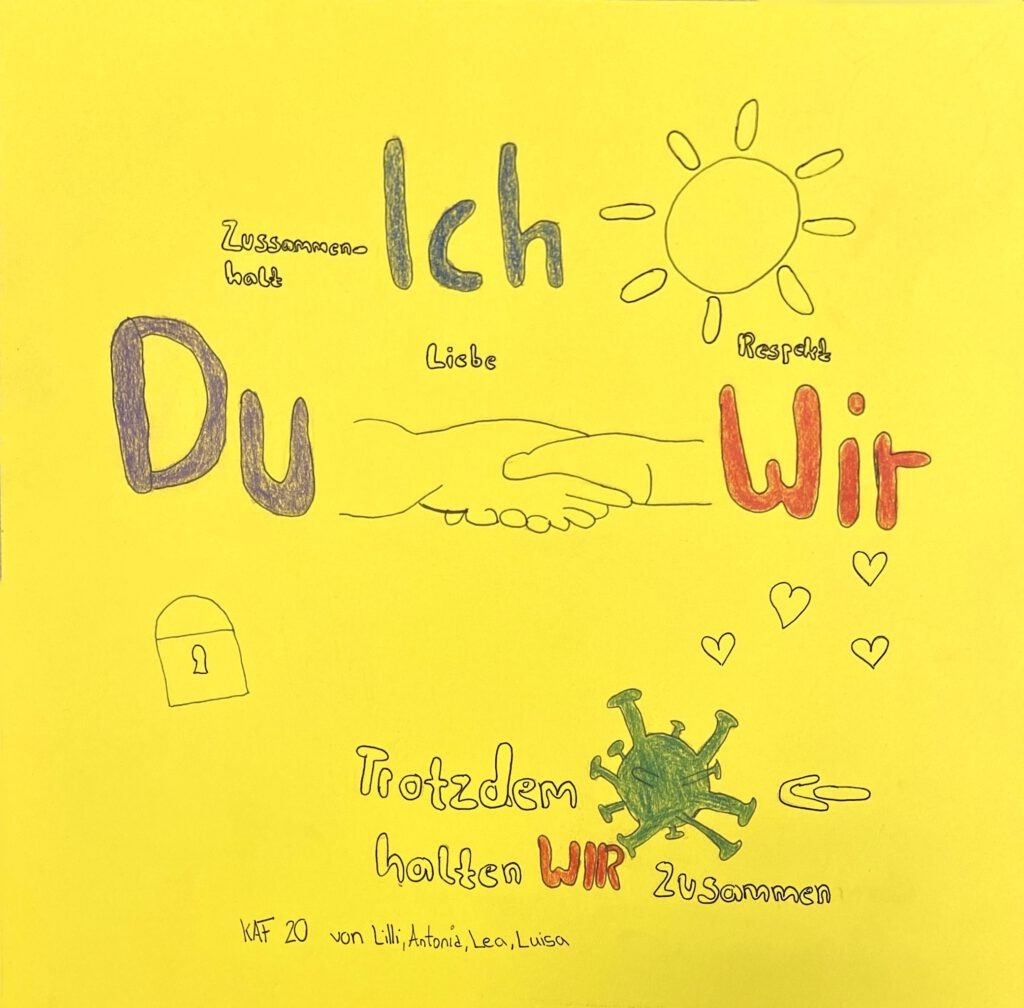 Ich
Zussammen-
halt
Du
Liebe
Respekt
Wir
Trotzdem
halten WIR zusammen
KAF 20 von Lilli, Antonia, Lea, Luisa